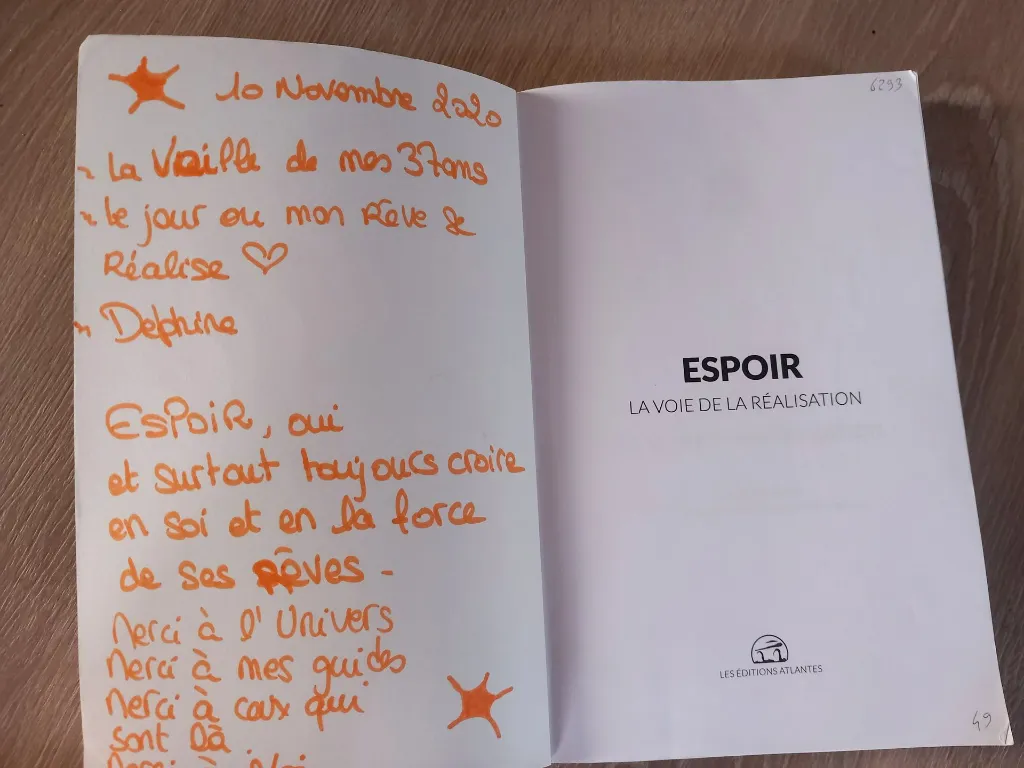 10 Novembre 2020
~ La Veille de mes 37ans
~ Le jour ou mon Rêve se
Réalise ♡
~ Delphine
ESPOIR, oui
et surtout toujours croire
en soi et en la force
de ses RÊVES -
Merci à l'Univers
Merci à mes guides
Merci à ceux qui
sont là.
Merci à
6293
ESPOIR
LA VOIE DE LA RÉALISATION
LES ÉDITIONS ATLANTES
49